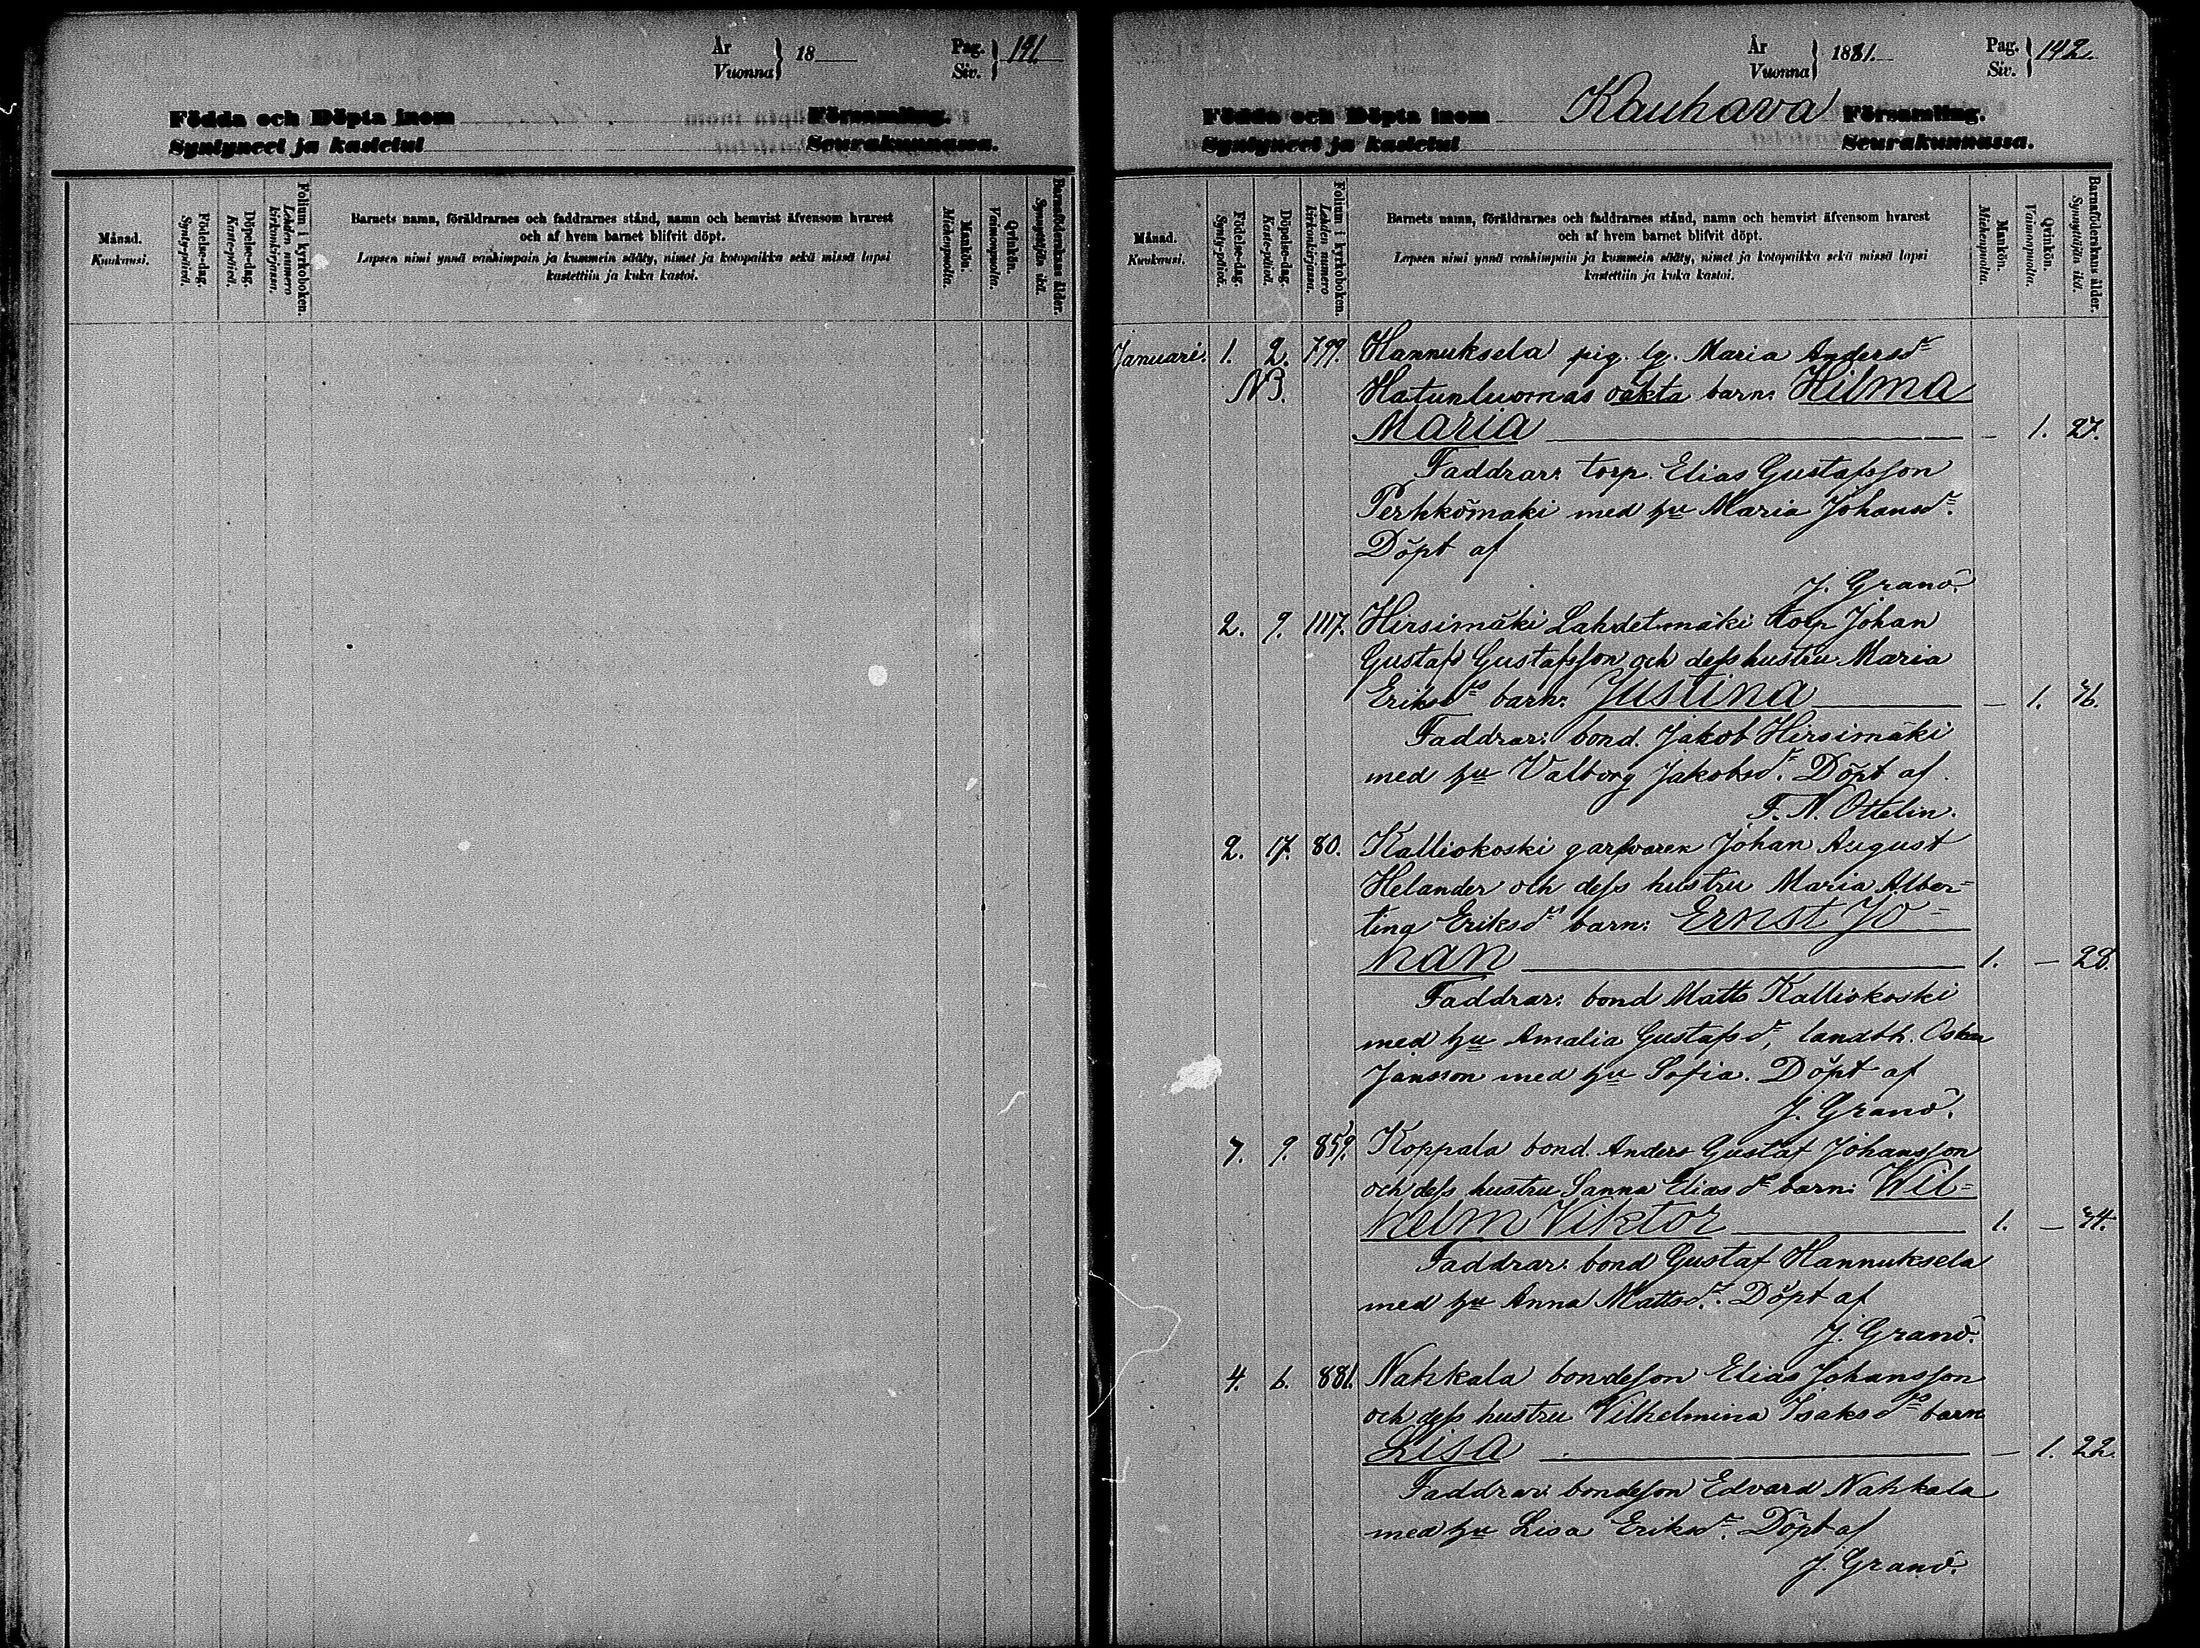 År
Vuonna } 18
Pag.
Siv. } 141.
Födda och Döpta inom Församling.
Syntyneet ja kastetut Seurakunnassa.
Månad.
Kuukausi.
Födelse-dag.
Synty-päivä.
Döpelse-dag.
Kaste-päivä.
Folium i kyrkoboken.
Lehden numero
kirkonkirjassa.
Barnets namn, föräldrarnes och faddrarnes stånd, namn och hemvist äfvensom hvarest
och af hvem barnet blifvit döpt.
Lapsen nimi ynnä vanhimpain ja kummein sääty, nimet ja kotopaikka sekä missä lapsi
kastettiin ja kuka kastoi.
Mankön.
Miehenpuolta.
Qvinkön.
Vaimonpuolta.
Barnaföderskans ålder.
Synnyttäjän ikä.
År
Vuonna } 1881.
Pag.
Siv. } 142.
Födda och Döpta inom Kauhava Församling.
Syntyneet ja kastetut Seurakunnassa.
Månad.
Kuukausi.
Födelse-dag.
Synty-päivä.
Döpelse-dag.
Kaste-päivä.
Folium i kyrkoboken.
Lehden numero
kirkonkirjassa.
Barnets namn, föräldrarnes och faddrarnes stånd, namn och hemvist äfvensom hvarest
och af hvem barnet blifvit döpt.
Lapsen nimi ynnä vanhimpain ja kummein sääty, nimet ja kotopaikka sekä missä lapsi
kastettiin ja kuka kastoi.
Mankön.
Miehenpuolta.
Qvinkön.
Vaimonpuolta.
Barnaföderskans ålder.
Synnyttäjän ikä.
Januari. 1. 2. 799. Hannuksela pig. lg. Maria Andersdr
NB. Hatunluomas oäkta barn: Hilma
Maria — 1. 27.
Faddrar: torp. Elias Gustafsson
Perhkömäki med hu Maria Johansdr.
Döpt af
J. Granö.
2. 9. 1117. Hirsimäki Lahdetmäki torp Johan
Gustaf Gustafsson och dess hustru Maria
Eriksdrs barn: Justina — 1. 46.
Faddrar: bond. Jakob Hirsimäki
med hu Valborg Jakobsdr. Döpt af
F. N. Ottelin.
2. 17. 80. Kalliokoski garfvaren Johan August
Helander och dess hustru Maria Alber=
tina Eriksdrs barn: Ernst Jo=
han 1. — 28.
Faddrar: bond Matts Kalliokoski
med hu Amalia Gustafsdr, landbh. Oskar
Jansson med hu Sofia. Döpt af
J. Granö.
7. 9. 859. Koppala bond. Anders Gustaf Johansson
och dess hustru Sanna Eliasdrs barn: Wil=
helm Viktor 1. — 34.
Faddrar: bond Gustaf Hannuksela
med hu Anna Mattsdr. Döpt af
J. Granö.
4. 6. 881. Nahkala bondeson Elias Johansson
och dess hustru Vilhelmina Isaksdrs barn
Lisa — 1. 22.
Faddrar: bondeson Edvard Nahkala
med hu Lisa Eriksdr. Döpt af
J. Granö.